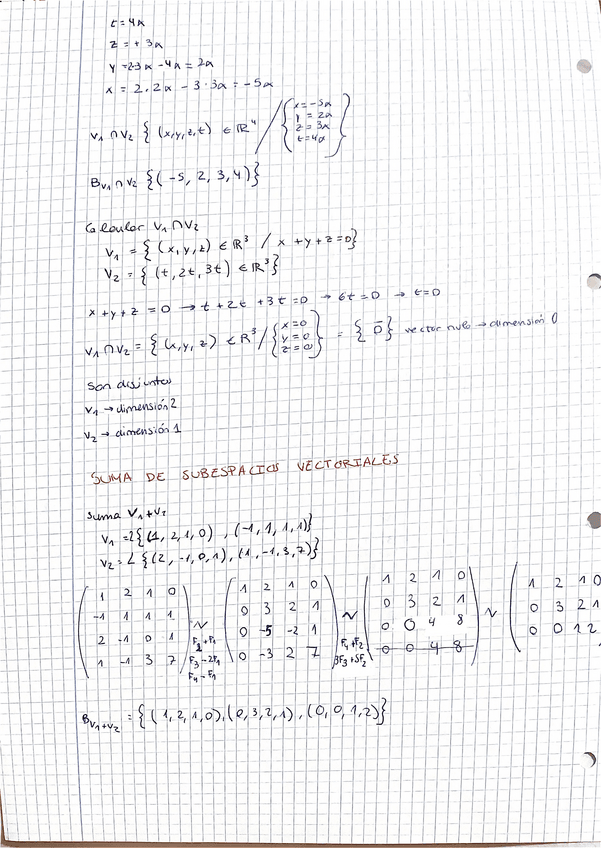 t = 4α
z = + 3α
y = 2·3α - 4α = 2α
x = 2·2α - 3·3α = -5α
V₁ ∩ V₂ { (x,y,z,t) ∈ ℝ⁴ / { x = -5α y = 2α z = 3α t = 4α }
B V₁∩V₂ {(-5, 2, 3, 4)}
Calcular V₁ ∩ V₂
V₁ = { (x, y, z) ∈ ℝ³ / x + y + z = 0}
V₂ = { (t, 2t, 3t) ∈ ℝ³}
x + y + z = 0 → t + 2t + 3t = 0 → 6t = 0 → t = 0
V₁ ∩ V₂ = { (x, y, z) ∈ ℝ³ / { x = 0 y = 0 z = 0 } = { 0̄ } vector nulo → dimensión 0
Son disjuntos
V₁ → dimensión 2
V₂ → dimensión 1
SUMA DE SUBESPACIOS VECTORIALES
Suma V₁ + V₂
V₁ = L{(1, 2, 1, 0), (-1, 1, 1, 1)}
V₂ = L{(2, -1, 0, 1), (1, -1, 3, 7)}
1 2 1 0 1 2 1 0 1 2 1 0 1 2 1 0
-1 1 1 1 ~ 0 3 2 1 ~ 0 3 2 1 ~ 0 3 2 1
2 -1 0 1 F₂+F₁ 0 -5 -2 1 F₄+F₂ 0 0 4 8 0 0 1 2
1 -1 3 7 F₃-2F₁ 0 -3 2 7 3F₃+5F₂ 0 0 4 8
F₄-F₁
B V₁+V₂ = {(1, 2, 1, 0), (0, 3, 2, 1), (0, 0, 1, 2)}